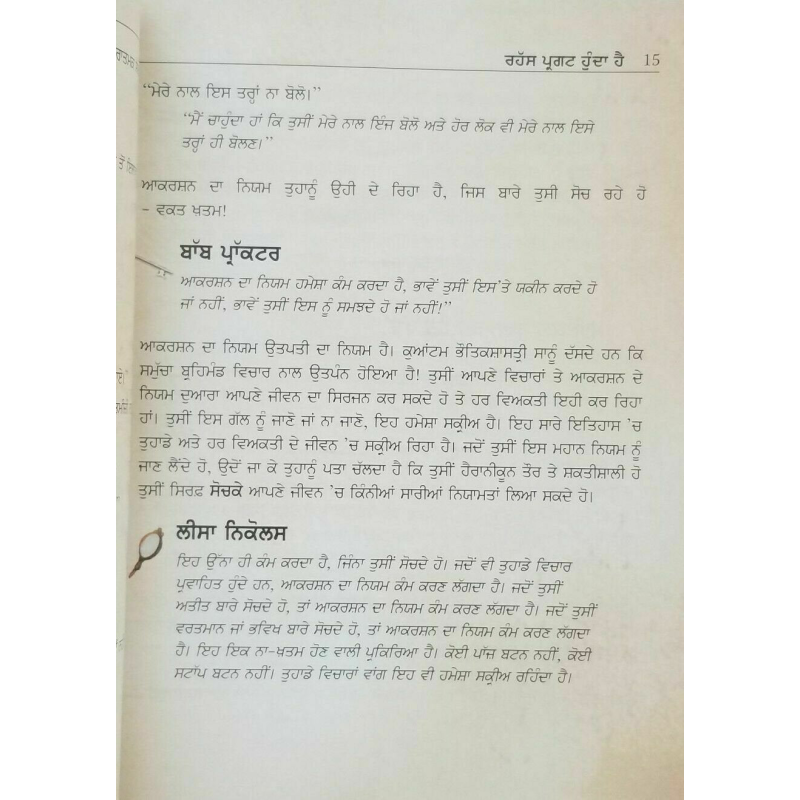 ਰਹੱਸ ਪ੍ਰਗਟ ਹੁੰਦਾ ਹੈ 15
“ਮੇਰੇ ਨਾਲ ਇਸ ਤਰ੍ਹਾਂ ਨਾ ਬੋਲੋ।”
“ਮੈਂ ਚਾਹੁੰਦਾ ਹਾਂ ਕਿ ਤੁਸੀਂ ਮੇਰੇ ਨਾਲ ਇੰਜ ਬੋਲੋ ਅਤੇ ਹੋਰ ਲੋਕ ਵੀ ਮੇਰੇ ਨਾਲ ਇਸੇ
ਤਰ੍ਹਾਂ ਹੀ ਬੋਲਣ।”
ਆਕਰਸ਼ਨ ਦਾ ਨਿਯਮ ਤੁਹਾਨੂੰ ਉਹੀ ਦੇ ਰਿਹਾ ਹੈ, ਜਿਸ ਬਾਰੇ ਤੁਸੀ ਸੋਚ ਰਹੇ ਹੋ
– ਵਕਤ ਖ਼ਤਮ!
ਬਾੱਬ ਪ੍ਰਾੱਕਟਰ
ਆਕਰਸ਼ਨ ਦਾ ਨਿਯਮ ਹਮੇਸ਼ਾ ਕੰਮ ਕਰਦਾ ਹੈ, ਭਾਵੇਂ ਤੁਸੀਂ ਇਸ'ਤੇ ਯਕੀਨ ਕਰਦੇ ਹੋ
ਜਾਂ ਨਹੀਂ, ਭਾਵੇਂ ਤੁਸੀਂ ਇਸ ਨੂੰ ਸਮਝਦੇ ਹੋ ਜਾਂ ਨਹੀਂ!”
ਆਕਰਸ਼ਨ ਦਾ ਨਿਯਮ ਉਤਪਤੀ ਦਾ ਨਿਯਮ ਹੈ। ਕੁਆਂਟਮ ਭੌਤਿਕਸ਼ਾਸਤ੍ਰੀ ਸਾਨੂੰ ਦੱਸਦੇ ਹਨ ਕਿ
ਸਮੁੱਚਾ ਬ੍ਰਹਿਮੰਡ ਵਿਚਾਰ ਨਾਲ ਉਤਪੰਨ ਹੋਇਆ ਹੈ! ਤੁਸੀਂ ਆਪਣੇ ਵਿਚਾਰਾਂ ਤੇ ਆਕਰਸ਼ਨ ਦੇ
ਨਿਯਮ ਦੁਆਰਾ ਆਪਣੇ ਜੀਵਨ ਦਾ ਸਿਰਜਨ ਕਰ ਸਕਦੇ ਹੋ ਤੇ ਹਰ ਵਿਅਕਤੀ ਇਹੀ ਕਰ ਰਿਹਾ
ਹਾਂ। ਤੁਸੀਂ ਇਸ ਗੱਲ ਨੂੰ ਜਾਣੋ ਜਾਂ ਨਾ ਜਾਣੋ, ਇਹ ਹਮੇਸ਼ਾ ਸਕ੍ਰੀਅ ਹੈ। ਇਹ ਸਾਰੇ ਇਤਿਹਾਸ 'ਚ
ਤੁਹਾਡੇ ਅਤੇ ਹਰ ਵਿਅਕਤੀ ਦੇ ਜੀਵਨ 'ਚ ਸਕ੍ਰੀਅ ਰਿਹਾ ਹੈ। ਜਦੋਂ ਤੁਸੀਂ ਇਸ ਮਹਾਨ ਨਿਯਮ ਨੂੰ
ਜਾਣ ਲੈਂਦੇ ਹੋ, ਉਦੋਂ ਜਾ ਕੇ ਤੁਹਾਨੂੰ ਪਤਾ ਚੱਲਦਾ ਹੈ ਕਿ ਤੁਸੀਂ ਹੈਰਾਨੀਕੂਨ ਤੌਰ ਤੇ ਸ਼ਕਤੀਸ਼ਾਲੀ ਹੋ
ਤੁਸੀਂ ਸਿਰਫ਼ ਸੋਚਕੇ ਆਪਣੇ ਜੀਵਨ 'ਚ ਕਿੰਨੀਆਂ ਸਾਰੀਆਂ ਨਿਯਾਮਤਾਂ ਲਿਆ ਸਕਦੇ ਹੋ।
ਲੀਸਾ ਨਿਕੋਲਸ
ਇਹ ਉੱਨਾ ਹੀ ਕੰਮ ਕਰਦਾ ਹੈ, ਜਿੰਨਾ ਤੁਸੀਂ ਸੋਚਦੇ ਹੋ। ਜਦੋਂ ਵੀ ਤੁਹਾਡੇ ਵਿਚਾਰ
ਪ੍ਰਵਾਹਿਤ ਹੁੰਦੇ ਹਨ, ਆਕਰਸ਼ਨ ਦਾ ਨਿਯਮ ਕੰਮ ਕਰਣ ਲੱਗਦਾ ਹੈ। ਜਦੋਂ ਤੁਸੀਂ
ਅਤੀਤ ਬਾਰੇ ਸੋਚਦੇ ਹੋ, ਤਾਂ ਆਕਰਸ਼ਨ ਦਾ ਨਿਯਮ ਕੰਮ ਕਰਣ ਲੱਗਦਾ ਹੈ। ਜਦੋਂ ਤੁਸੀਂ
ਵਰਤਮਾਨ ਜਾਂ ਭਵਿਖ ਬਾਰੇ ਸੋਚਦੇ ਹੋ, ਤਾਂ ਆਕਰਸ਼ਨ ਦਾ ਨਿਯਮ ਕੰਮ ਕਰਣ ਲੱਗਦਾ
ਹੈ। ਇਹ ਇਕ ਨਾ-ਖ਼ਤਮ ਹੋਣ ਵਾਲੀ ਪ੍ਰਕਿਰਿਆ ਹੈ। ਕੋਈ ਪਾੱਜ਼ ਬਟਨ ਨਹੀਂ, ਕੋਈ
ਸਟਾੱਪ ਬਟਨ ਨਹੀਂ। ਤੁਹਾਡੇ ਵਿਚਾਰਾਂ ਵਾਂਗ ਇਹ ਵੀ ਹਮੇਸ਼ਾ ਸਕ੍ਰੀਅ ਰਹਿੰਦਾ ਹੈ।